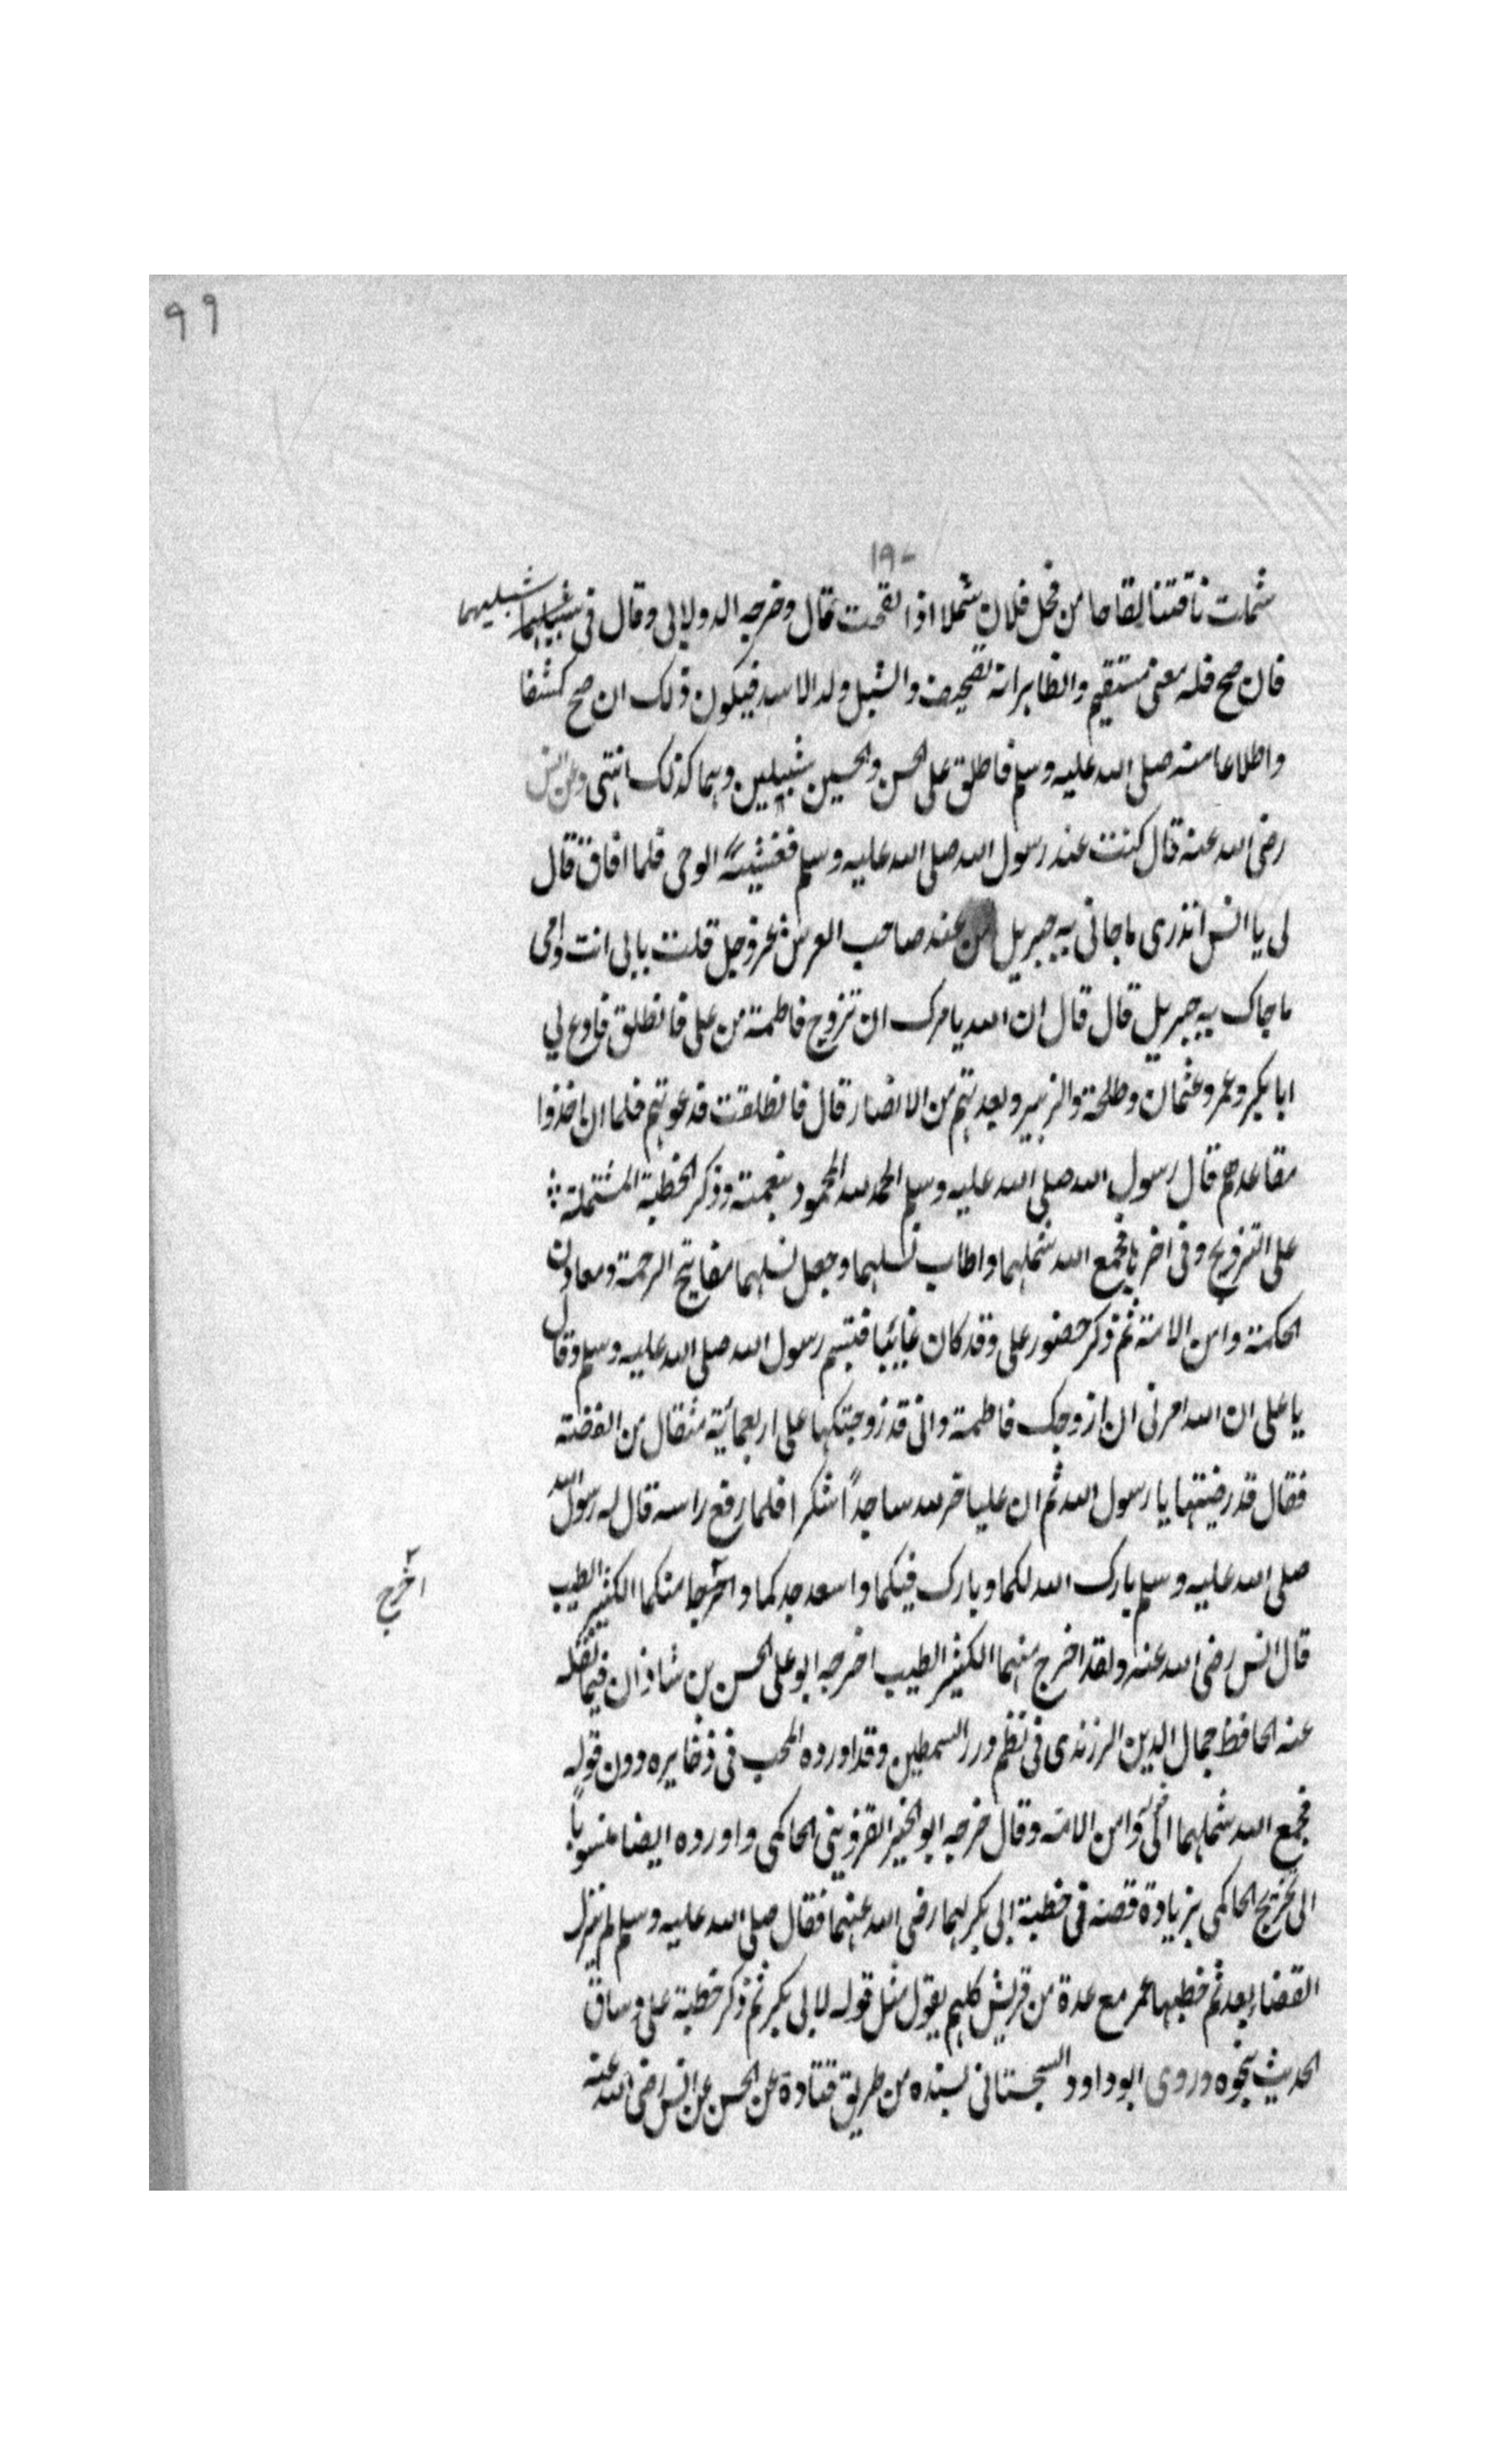 ٩٩
١٩٠
شملت ناقتنا لقاحا من فحل فلان شملا اذا لقحت قال وخرجه الدولابى وقال فى شبليهما
فان صح فله معنى مستقيم والظاهر انه تصحيف والشبل ولد الاسد فيكون ذلك ان صح كشفا
واطلاعا منه صلى الله عليه وسلم فاطلق على الحسن والحسين شبلين وهما كذلك انتهى وعن انس
رضى الله عنه قال كنت عند رسول الله صلى الله عليه وسلم فغشيه الوحى فلما افاق قال
لى يا انس اتدرى ما جانى به جبريل من عند صاحب العرش عزوجل قلت بابى انت وامى
ما جاك به جبريل قال قال ان الله يامرك ان تزوج فاطمة من على فانطلق فادع لى
ابا بكر وعمر وعثمان وطلحة والزبير وبعدتهم من الانصار قال فانطلقت فدعوتهم فلما ان اخذوا
مقاعدهم قال رسول الله صلى الله عليه وسلم الحمد لله المحمود بنعمته وذكر الخطبة المشتملة
على التزويج وفى اخرها فجمع الله شملهما واطاب نسلهما وجعل نسلهما مفاتيح الرحمة ومعادن
الحكمة وامن الامة ثم ذكر حضور على وقد كان غايبا فتبسم رسول الله صلى الله عليه وسلم وقال
يا على ان الله امرنى ان ازوجك فاطمة وانى قد زوجتكها على اربعمائة مثقال من الفضة
فقال قد رضيتها يا رسول الله ثم ان عليا خر لله ساجداً شكرا فلما رفع راسه قال له رسول الله
صلى الله عليه وسلم بارك الله لكما وبارك فيكما واسعد جدكما واخرجا منكما الكثير الطيب
اخرج
قال انس رضى الله عنه ولقد اخرج منهما الكثير الطيب اخرجه ابو على الحسن بن شاذان فيما نقله
عنه الحافظ جمال الدين الزرندى فى نظم درر السمطين وقد اورده المحب فى ذخايره دون قوله
فجمع الله شملهما الى وامن الامة وقال خرجه ابو الخير القزوينى الحاكمى واورده ايضا منسوباً
الى تخريج الحاكمى بزيادة قصة فى خطبة ابى بكر لها رضى الله عنهما فقال صلى الله عليه وسلم لم ينزل
القضاء بعد ثم خطبها عمر مع عدة من قريش كلهم يقول مثل قوله لابى بكر ثم ذكر خطبة على وساق
الحديث بنحوه وروى ابو داود السجستانى بسنده من طريق قتادة عن الحسن عن انس رضى الله عنه